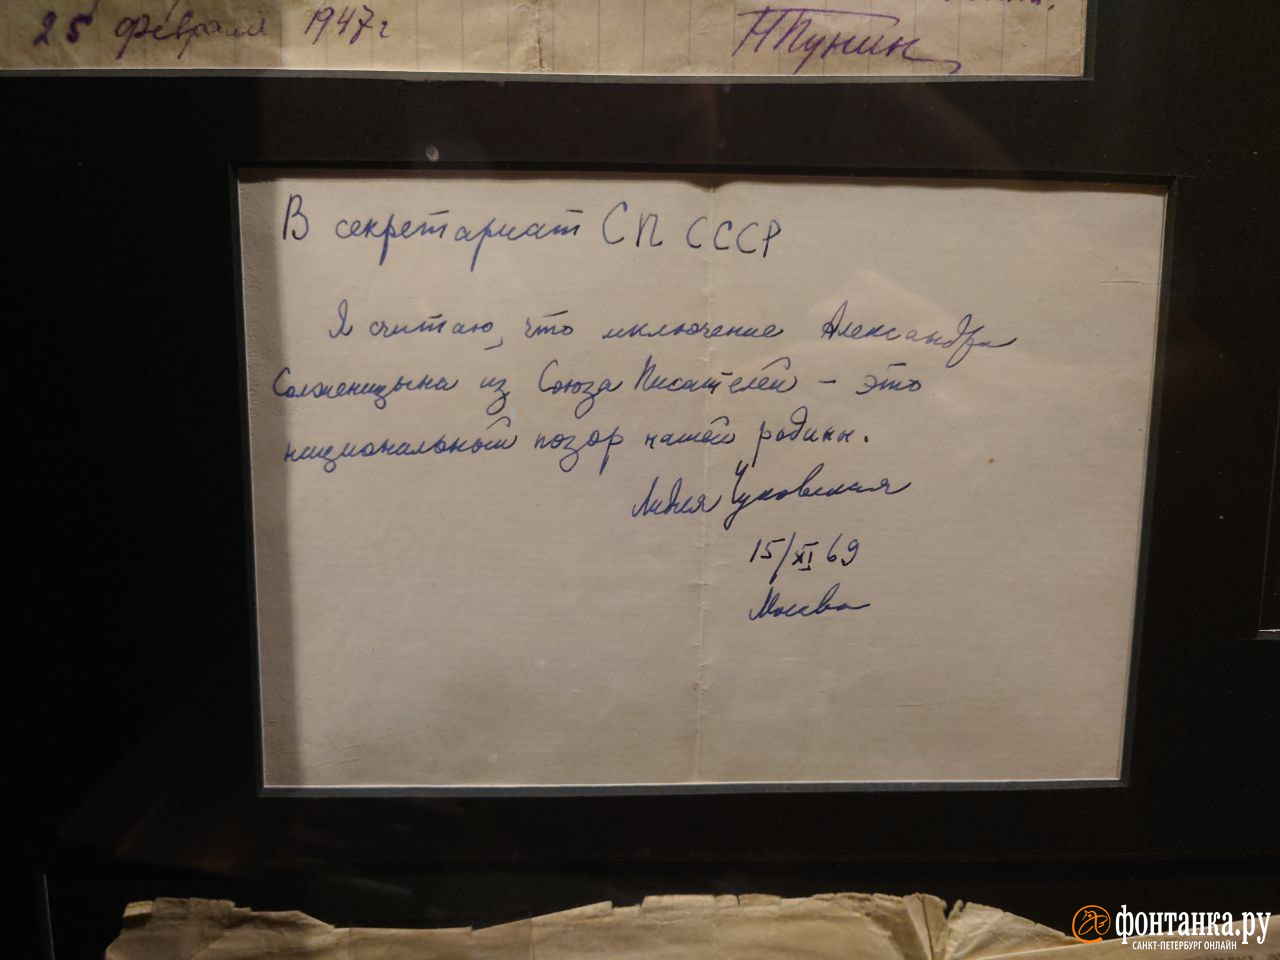 25 февраля 1947 г
НПунин
В секретариат СП СССР
Я считаю, что исключение Александра
Солженицына из Союза Писателей – это
национальный позор нашей родины.
Лидия Чуковская
15/XI 69
Москва
фонтанка.ру
САНКТ-ПЕТЕРБУРГ ОНЛАЙН